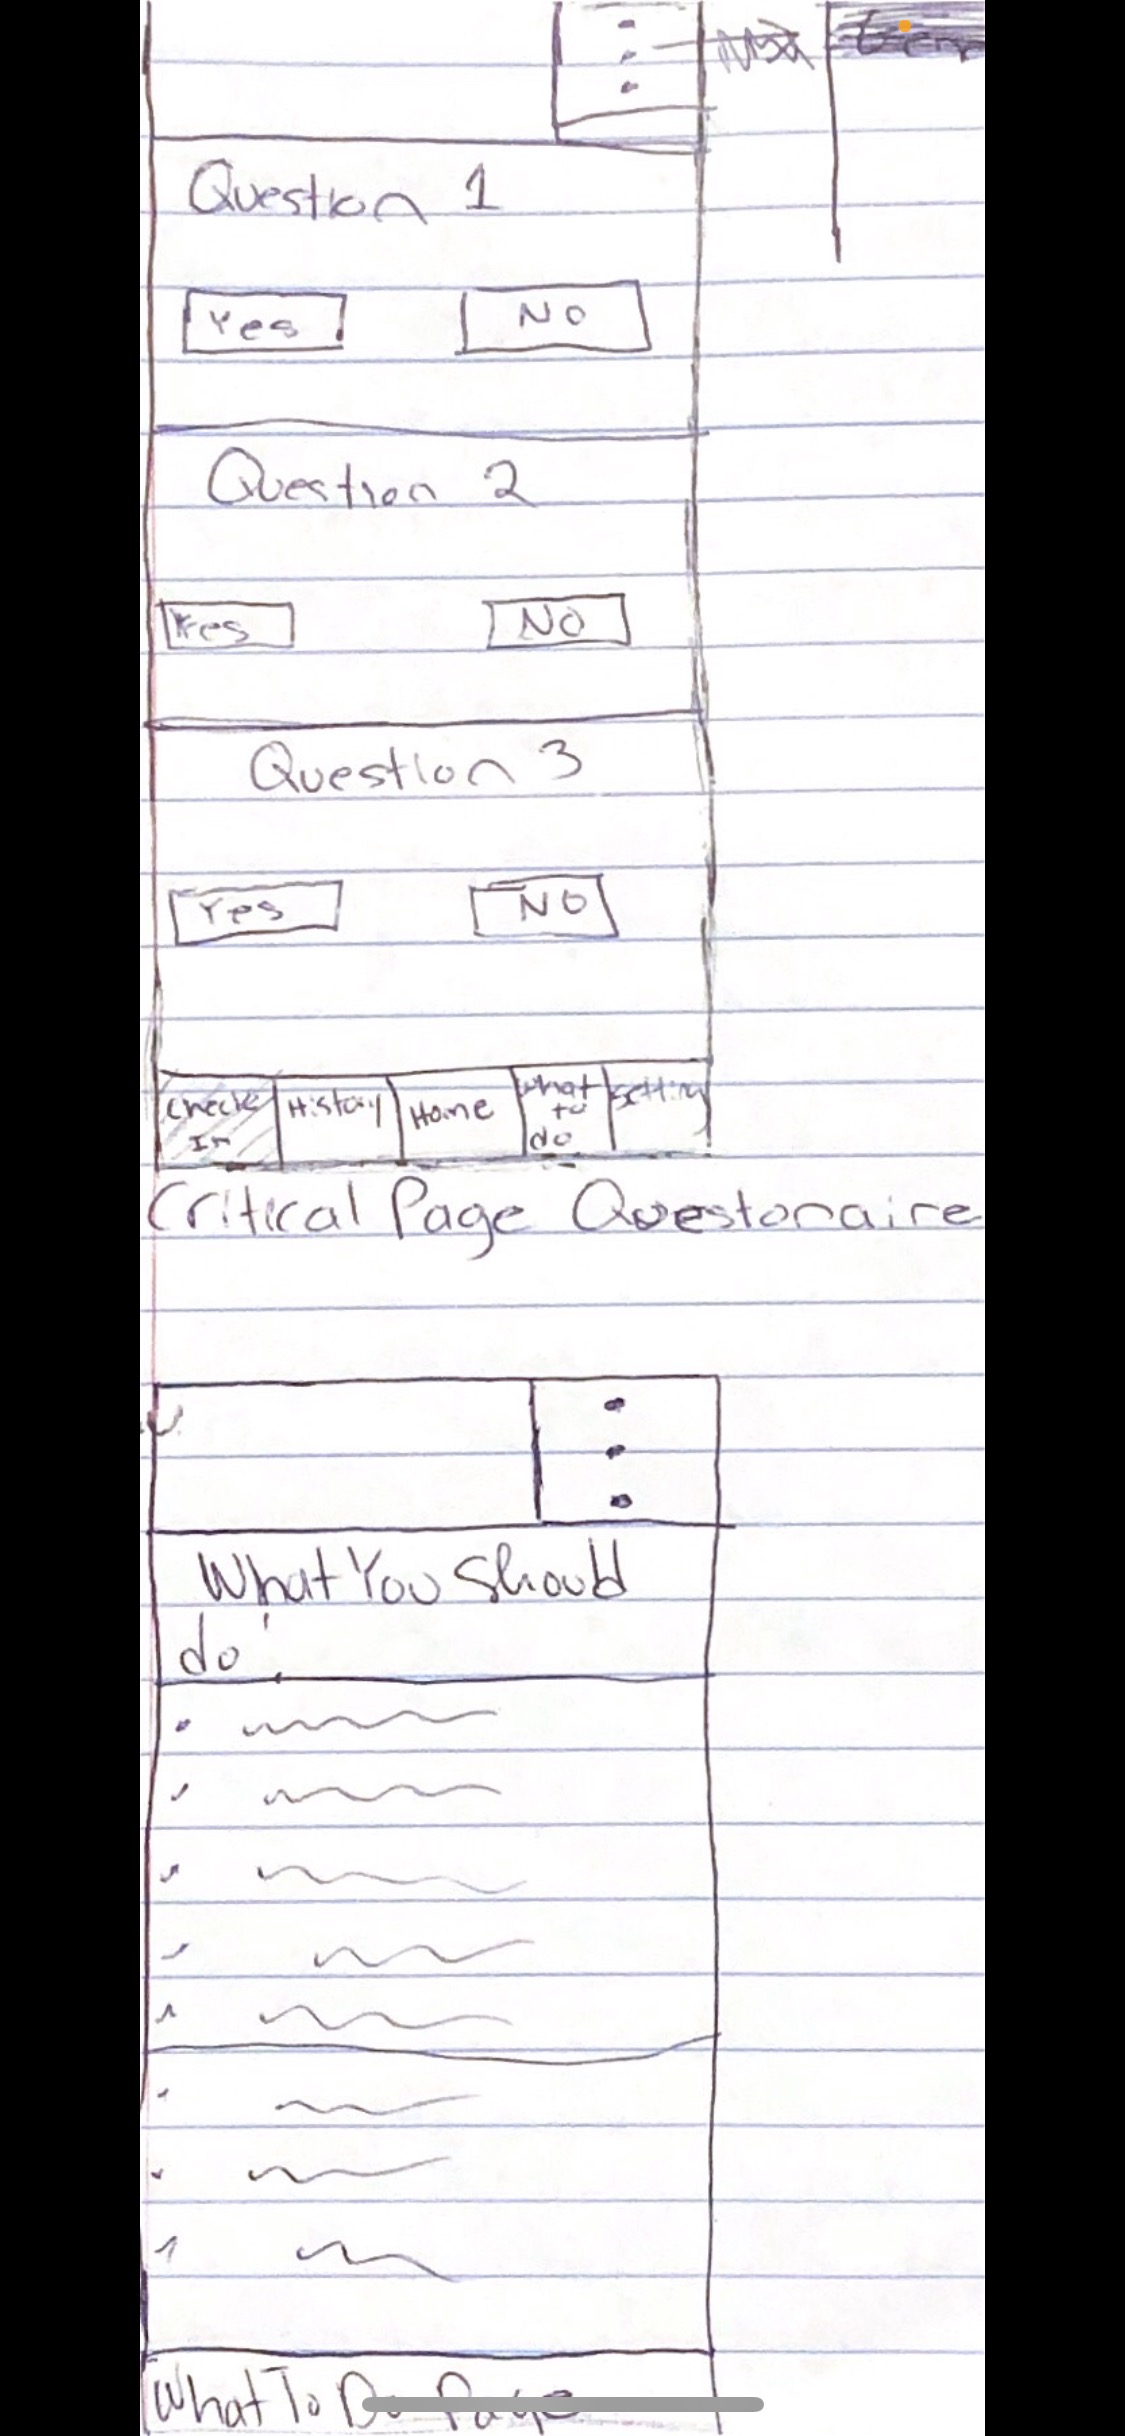 Question 1
Yes No
Question 2
Yes No
Question 3
Yes NO
Check In History Home What to do Setting
Critical Page Questonaire
What You Should
do:
What To Do Page